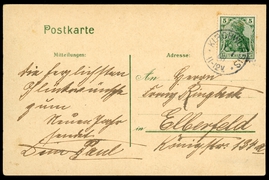 Postkarte
Mitteilungen:
Adresse:
5 5
die herzlichsten
Glückwünsche
zum
Neuen Jahr
sendet
Dein Paul
An Herrn
Elberfeld
Königstr.